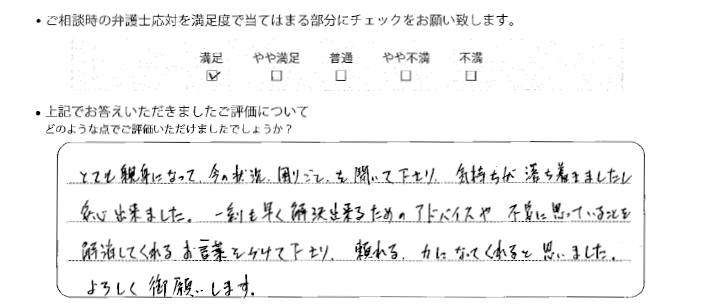 • ご相談時の弁護士応対を満足度で当てはまる部分にチェックをお願い致します。
満足 やや満足 普通 やや不満 不満
☑ ☐ ☐ ☐ ☐
• 上記でお答えいただきましたご評価について
どのような点でご評価いただけましたでしょうか？
とても親身になって、今の状況、困りごと、を聞いて下さり、気持ちが落ち着きましたし
安心出来ました。一刻も早く解決出来るためのアドバイスや不安に思っていることを
解消してくれるお言葉をかけて下さり、頼れる、力になってくれると思いました。
よろしく御願いします。